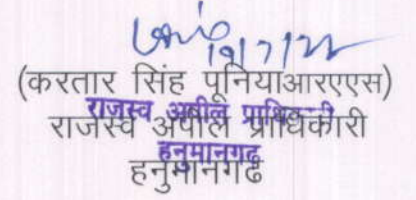 19/7/22
(करतार सिंह पूनियाआरएएस)
राजस्व अपील प्राधिकारी
राजस्व अपील प्राधिकारी
हनुमानगढ
हनुमानगढ